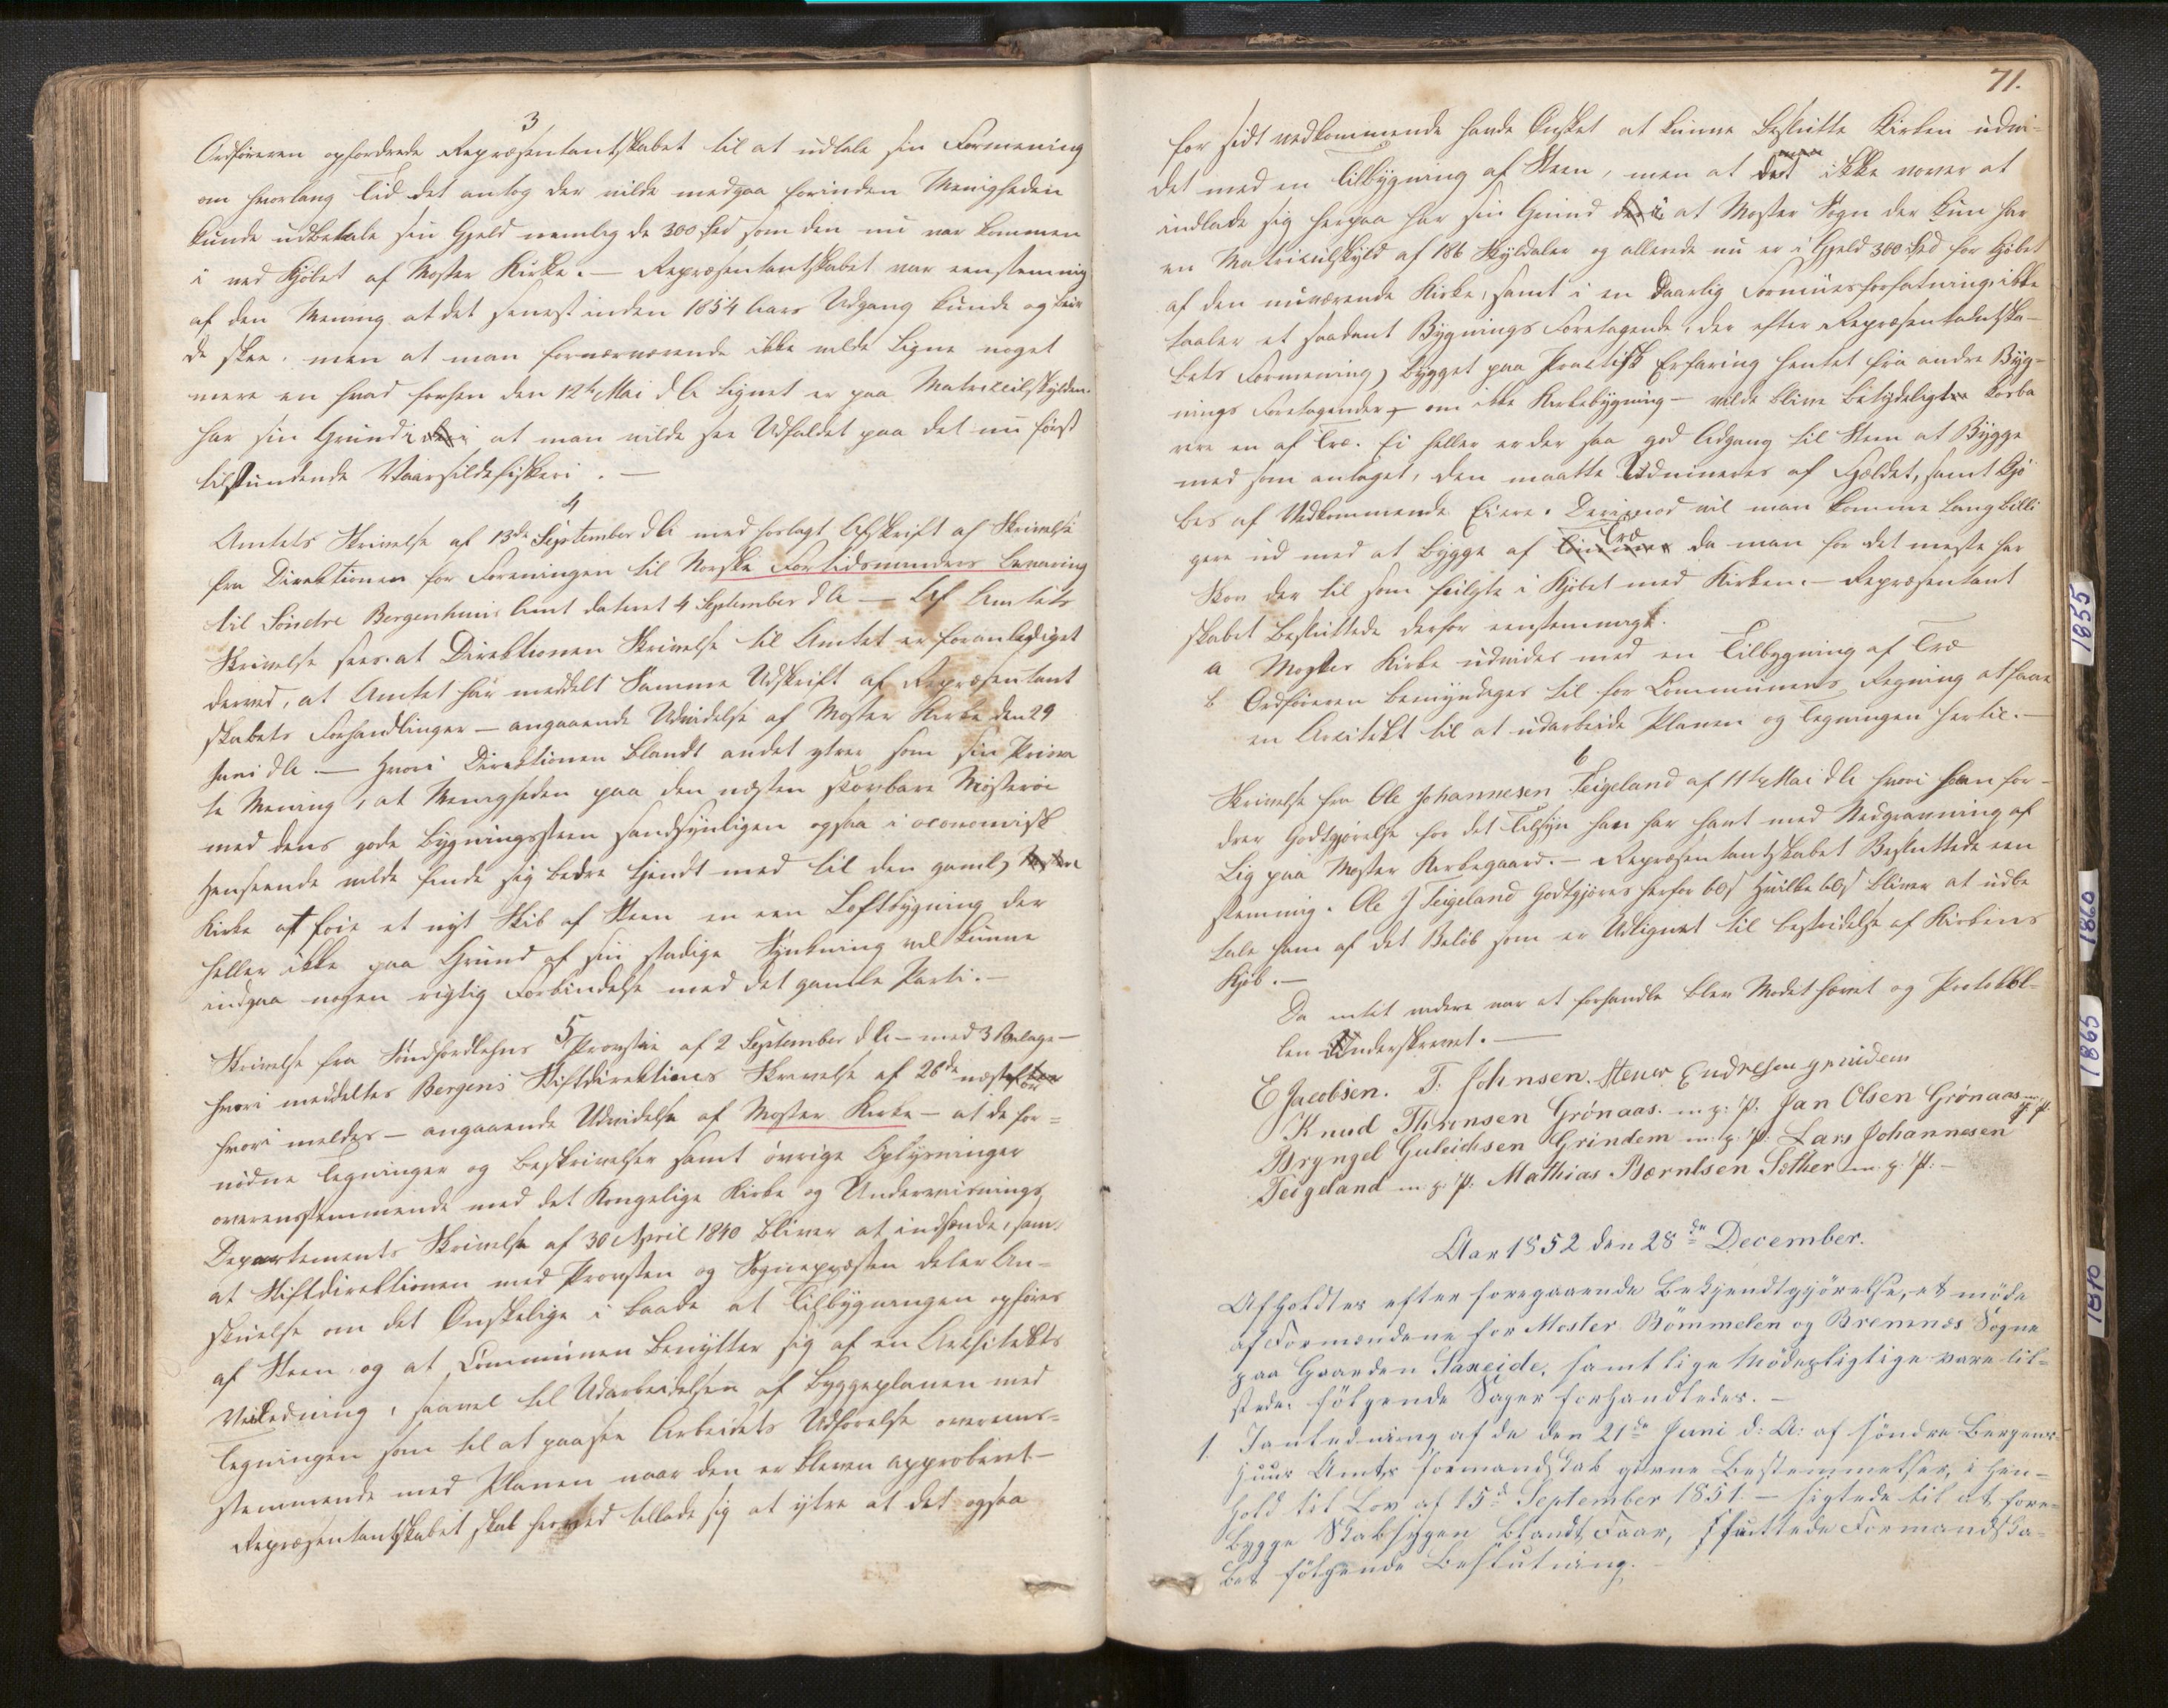 3
Ordføreren opfordrede Repræsentantskabet til at udtale sin Formening
om hvorlang Tid det antog der vilde medgaa forinden Menigheden
kunde udbetale sin Gjeld nemlig de 300 Spd som den nu var kommen
i ved Kjøbet af Moster Kirke. — Repræsentantskabet var eenstemmig
af den Mening at det senest inden 1854 Aars Udgang kunde og bur
de skee. men at man fornærværende ikke vilde Ligne noget
mere en hvad forhen den 12te Mai d A lignet er paa Matriculskylden.
har sin Grund i at man vilde see Udfaldet paa det nu først
tilstundende Vaarsildefiskeri. —
4
Amtets Skrivelse af 13de September d A med forlagt Afskrift af Skrivelse
fra Direktionen for Foreningen til Norske Fortidsminders Bevaring
til Søndre Bergenhuus Amt dateret 4 September d A — Af Amtets
Skrivelse sees at Direktionen Skrivelse til Amtet er foranlediget
derved, at Amtet har meddelt Samme Udskrift af Repræsentant
skabets Forhandlinger — angaaende Udvidelse af Moster Kirke den 29
Juni d A. — Hvori Direktionen blandt andet ytrer som sin Priva
te Mening, at Menigheden paa den næsten skovbare Mosterøe
med dens gode bygningssteen sandsynligen ogsaa i oconomisk
Henseende vilde finde sig bedre tjendt med til den gamle
Kirke at føie et nyt Skib af Steen en een Loftbygning der
heller ikke paa Grund af sin stadige Synkning vil kunne
indgaa nogen rigtig Forbindelse med det gamle Parti. —
5
Skrivelse fra Søndhordlehns Provstie af 2 September d A — med 3 Bilage —
hvori meddeltes Bergens Stiftdirektions Skrivelse af 26de næstfør
hvori meldes — angaaende Udvidelse af Moster Kirke — at de for=
nødne Tegninger og beskrivelser samt øvrige Oplysninger
overensstemmende med det Kongelige Kirke og Undervisnings
Departements Skrivelse af 30 April 1840 bliver at indsende, sam
at Stiftdirektionen med Provsten og Sognepræsten deler An=
skuelse om det Ønskelige i baade at Tilbygningen opføres
af Steen og at Communen benytter sig af en Architekts
Veiledning, saavel til Udarbeidelsen af Byggeplanen med
Tegningen som til at paasee Arbeidets Udførelse overens=
stemmende med Planen naar den er bleven approberet. —
Repræsentantskabet skal herved tillade sig at ytre at det ogsaa
71.
for sidt vedkommende havde Ønsket at kunne beslutte Kirken udvi-
det med en Tilbygning af Steen, men at ikke vover at
indlade sig herpaa har sin Grund i at Moster Sogn der kun har
en Matriculskyld af 186 Skyldaler og allerede nu er i Gjeld 300 Spd for Kjøbet
af den nuværende Kirke, samt i en daarlig Formuesforfatning, ikke
taaler et saadant Bygnings Foretagende, der efter Repræsentantska-
bets Formening, bygget paa Practisk Erfaring hentet fra andre Byg-
nings Foretagender — om ikke Kirkebygning — vilde blive betydeligt kostba
rere en af Træ. Ei heller er der saa god Adgang til Steen at Bygge
med som antaget, den maatte Udmineres af Fjeldet, samt Kjø
bes af Vedkommende Eiere. Derimod vil man komme langt billi
gere ud med at bygge af Træ da man for det meste har
Skov der til som fulgte i Kjøbet med Kirken. — Repræsentant
skabet besluttede derfor eenstemmigt.
a Moster Kirke udvides med en Tilbygning af Træ
b Ordføreren bemyndiges til for Communens Regning at faae
en Arcitekt til at udarbeide Planen og Tegningen hertil. —
6
Skrivelse fra Ole Johannesen Teigeland af 11te Mai d A hvori han for-
drer Godtgjørelse for det Tilsyn han har havt med Nedgravning af
Lig paa Moster Kirkegaard. — Repræsentantskabet Besluttede een
stemmig. Ole J Teigeland Godtgjøres herfor 60s Hvilke 60s bliver at udbe
tale ham af det Beløb som er Udlignet til bestridelse af Kirkens
Kjøb. —
Da intet videre var at forhandle blev Mødet hævet og Protokkol-
len Underskrevet. —
E Jacobsen. T: Johnsen. Steuer Endresen grindem
Knud Thomsen Grönaas. m. p: P. Jan Olsen Grönaas m. p. P.
Bryngel Guleichsen Grindem m. p. P. Lars Johannesen
Teigeland m. p. P. Mathias Bærntsen Sæther m. p. P. —
Aar 1852 den 28de December.
Afholdtes efter foregaaende Bekjendtgjörelse, et möde
af Formændene for Moster Bömmelen og Bremnæs Sogne
paa Gaarden Saxeide, samtlige Mödepligtige vare til=
stede. fölgende Sager forhandledes. —
1. I anledning af de den 21de Juni d: A: af söndre Bergen-
huus Amts formandskab givne Bestemmelser, i Hen=
hold til Lov af 15de September 1851. — sigtede til at fore=
bygge Skabsygen blandt Faar, fattede Formandska=
bet fölgende Beslutning. —